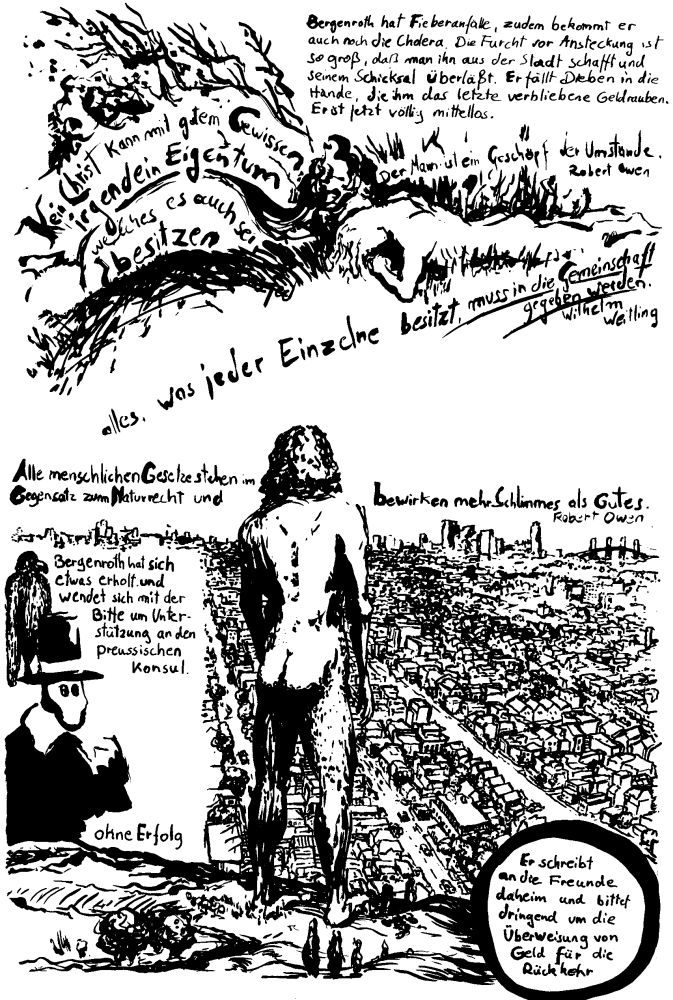 Bergenroth hat Fieberanfälle, zudem bekommt er
auch noch die Cholera. Die Furcht vor Ansteckung ist
so groß, daß man ihn aus der Stadt schafft und
seinem Schicksal überläßt. Er fällt Dieben in die
Hände, die ihm das letzte verbliebene Geld rauben.
Er ist jetzt völlig mittellos.
Kein Christ kann mit gutem Gewissen
irgendein Eigentum
welches es auch sei
besitzen
Der Mann ist ein Geschöpf der Umstände.
Robert Owen
alles, was jeder Einzelne besitzt, muss in die Gemeinschaft
gegeben werden.
Wilhelm
Weitling
Alle menschlichen Gesetze stehen im
Gegensatz zum Naturrecht und
bewirken mehr Schlimmes als Gutes.
Robert Owen
Bergenroth hat sich
etwas erholt und
wendet sich mit der
Bitte um Unter-
stützung an den
preussischen
Konsul.
ohne Erfolg
Er schreibt
an die Freunde
daheim und bittet
dringend um die
Überweisung von
Geld für die
Rückkehr